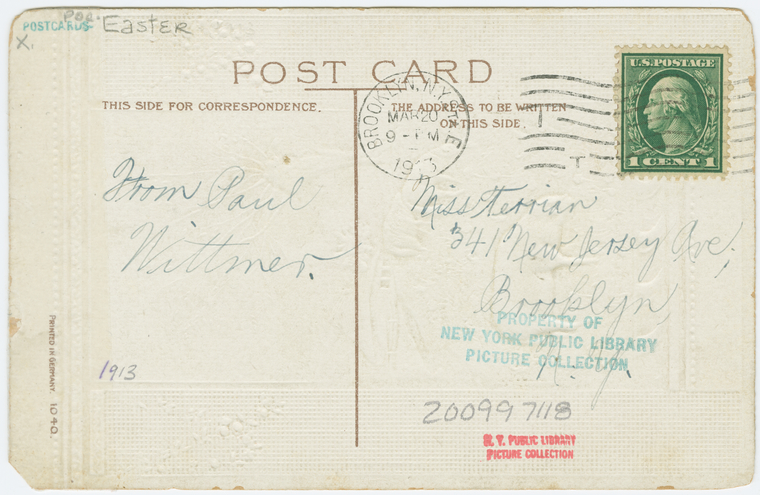 POSTCARDS- Easter
X.
POST CARD
THIS SIDE FOR CORRESPONDENCE.
THE ADDRESS TO BE WRITTEN
ON THIS SIDE.
BROOKLYN, N.Y.
MAR 20
9 - PM
1913
U.S. POSTAGE
1 CENT 1
From Paul
Wittmer.
Miss Terrian
341 New Jersey Ave,
Brooklyn,
N. Y.
PROPERTY OF
NEW YORK PUBLIC LIBRARY
PICTURE COLLECTION
1913
PRINTED IN GERMANY. 1040.
200997118
N. Y. PUBLIC LIBRARY
PICTURE COLLECTION